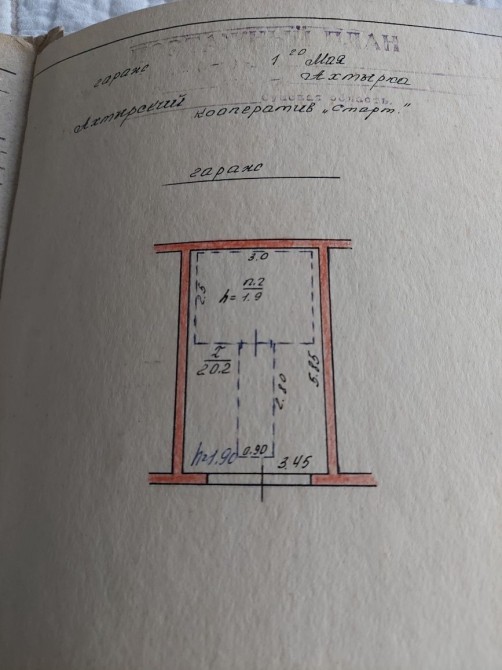 ПОЭТАЖНЫЙ ПЛАН
гараж 1го Мая
Ахтырка
Сумская область.
Ахтырский кооператив „Старт."
гараж
3.0
2.3
п.2
h= 1.9
I
20.2
5.85
2.80
h=1.90
0.90
3.45